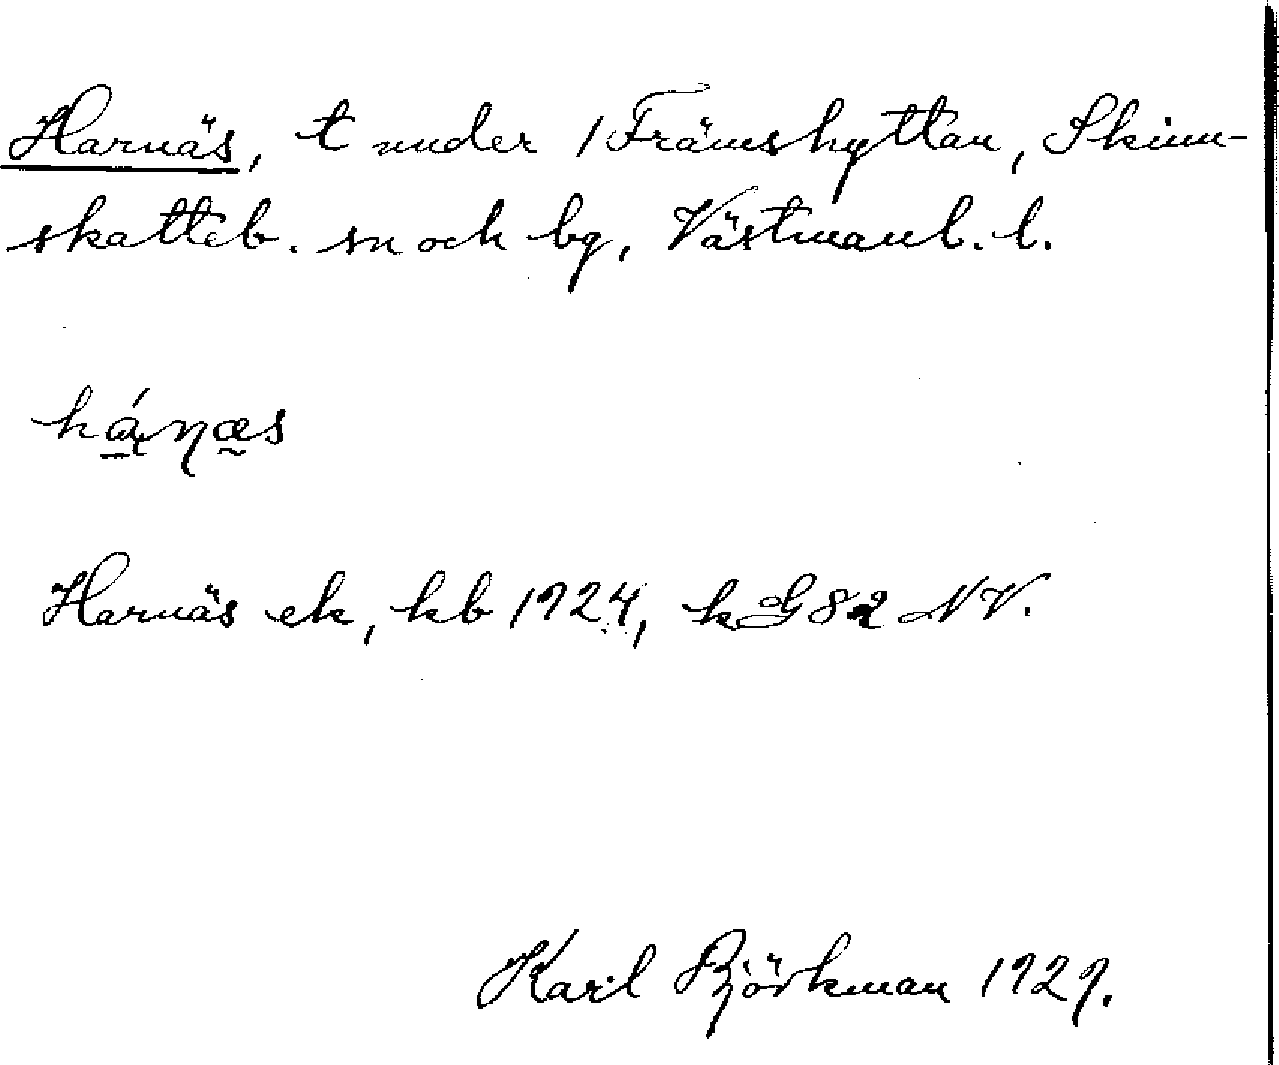 Harnäs, t under 1 Främshyttan, Skinn-
skatteb. sn och bg, Västmanl. l.
há̱ṇæ̰s
Harnäs ek, kb 1924, k G82 NV.
Karl Björkman 1929.